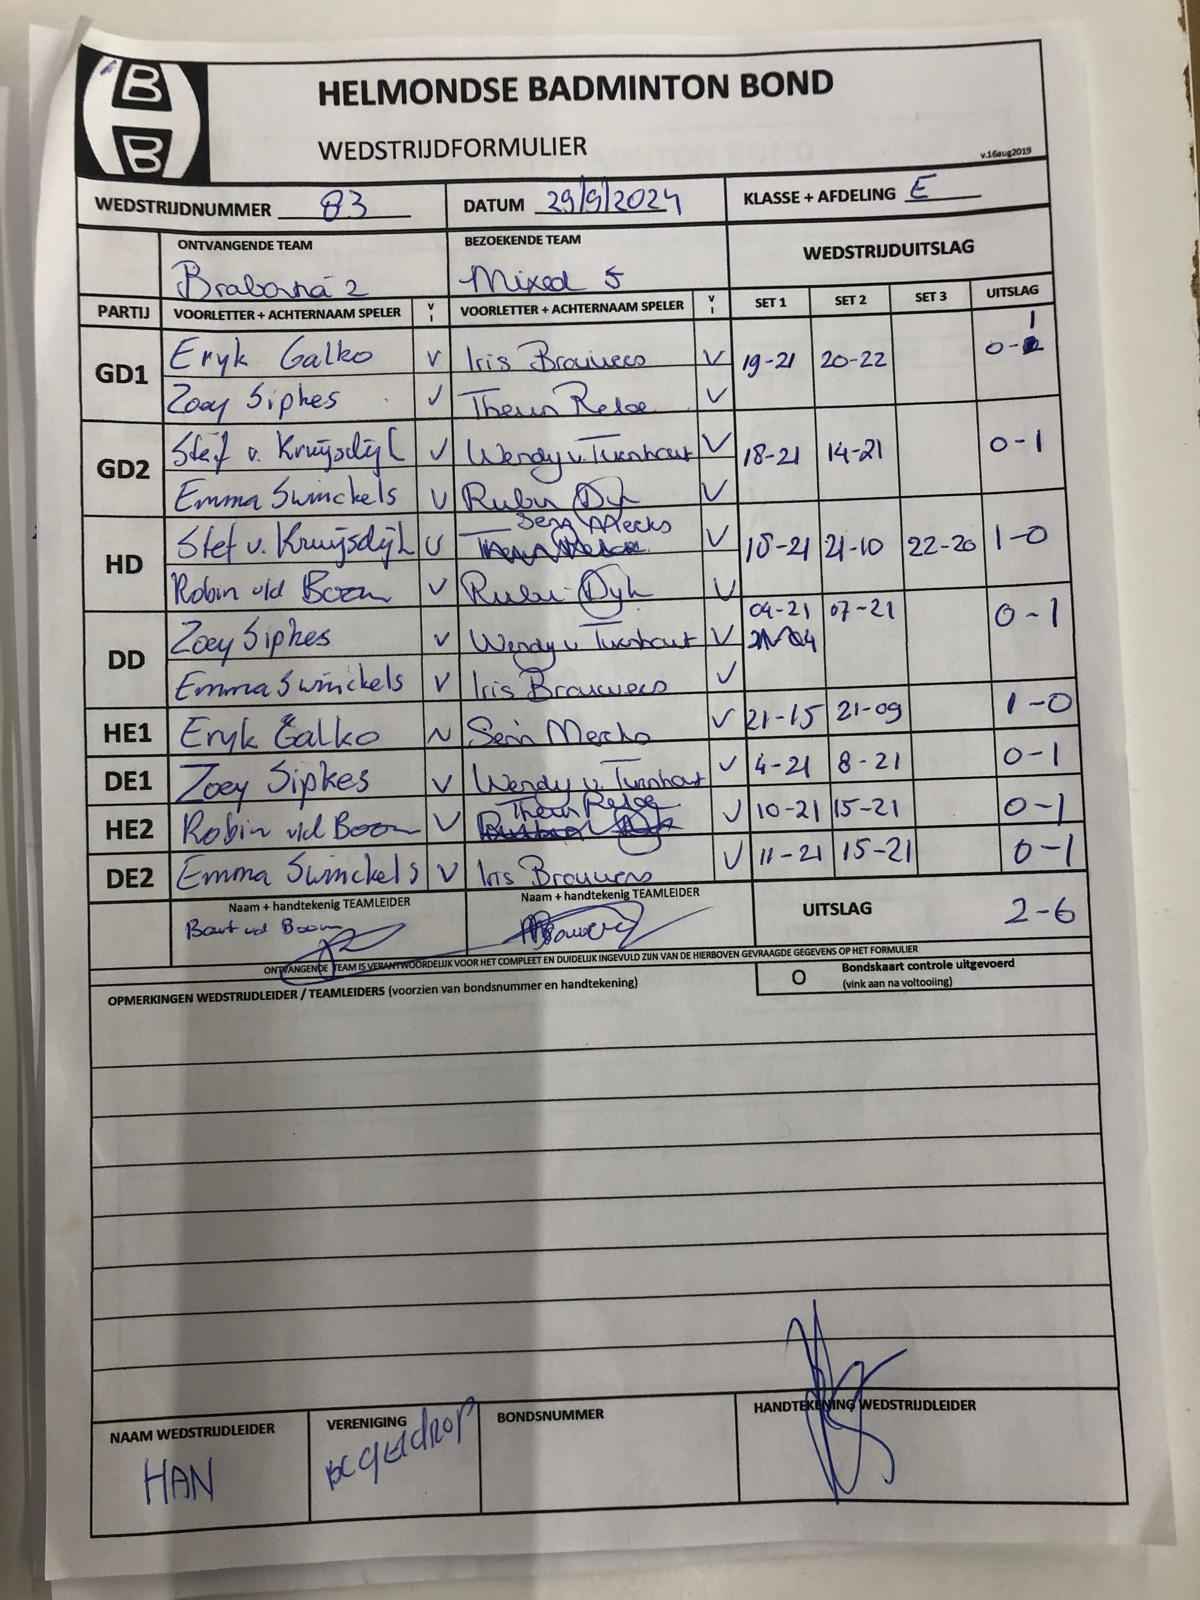 B
B
HELMONDSE BADMINTON BOND
WEDSTRIJDFORMULIER
v.16aug2019
WEDSTRIJDNUMMER 83 DATUM 29/9/2024 KLASSE + AFDELING E
ONTVANGENDE TEAM BEZOEKENDE TEAM WEDSTRIJDUITSLAG
2 Mixed 5
PARTIJ VOORLETTER + ACHTERNAAM SPELER V I VOORLETTER + ACHTERNAAM SPELER V I SET 1 SET 2 SET 3 UITSLAG
GD1 Eryk Galko V Iris Brouwers V 19-21 20-22 0-1
Zoey Sipkes V Theun V
GD2 Stef v. Kruijsdijk V Wendy v. Turnhout V 18-21 14-21 0-1
Emma Swinckels V Ruben Dyk V
HD Stef v. Kruijsdijk V V 21-10 22-20 1-0
Robin vld Boom V Ruben Dyk V
DD Zoey Sipkes V Wendy v Turnhout V 04-21 07-21 0-1
Emma Swinckels V Iris Brouwers V
HE1 Eryk Galko V V 21-15 21-09 1-0
DE1 Zoey Sipkes V Wendy v. Turnhout V 4-21 8-21 0-1
HE2 Robin vld Boom V Theun V 10-21 15-21 0-1
DE2 Emma Swinckels V Iris Brouwers V 11-21 15-21 0-1
Naam + handtekenig TEAMLEIDER Naam + handtekenig TEAMLEIDER UITSLAG 2-6
Bart vd Boom
ONTVANGENDE TEAM IS VERANTWOORDELIJK VOOR HET COMPLEET EN DUIDELIJK INGEVULD ZIJN VAN DE HIERBOVEN GEVRAAGDE GEGEVENS OP HET FORMULIER
OPMERKINGEN WEDSTRIJDLEIDER / TEAMLEIDERS (voorzien van bondsnummer en handtekening) O Bondskaart controle uitgevoerd
(vink aan na voltooiing)
NAAM WEDSTRIJDLEIDER VERENIGING BONDSNUMMER HANDTEKENING WEDSTRIJDLEIDER
HAN BC geldrop